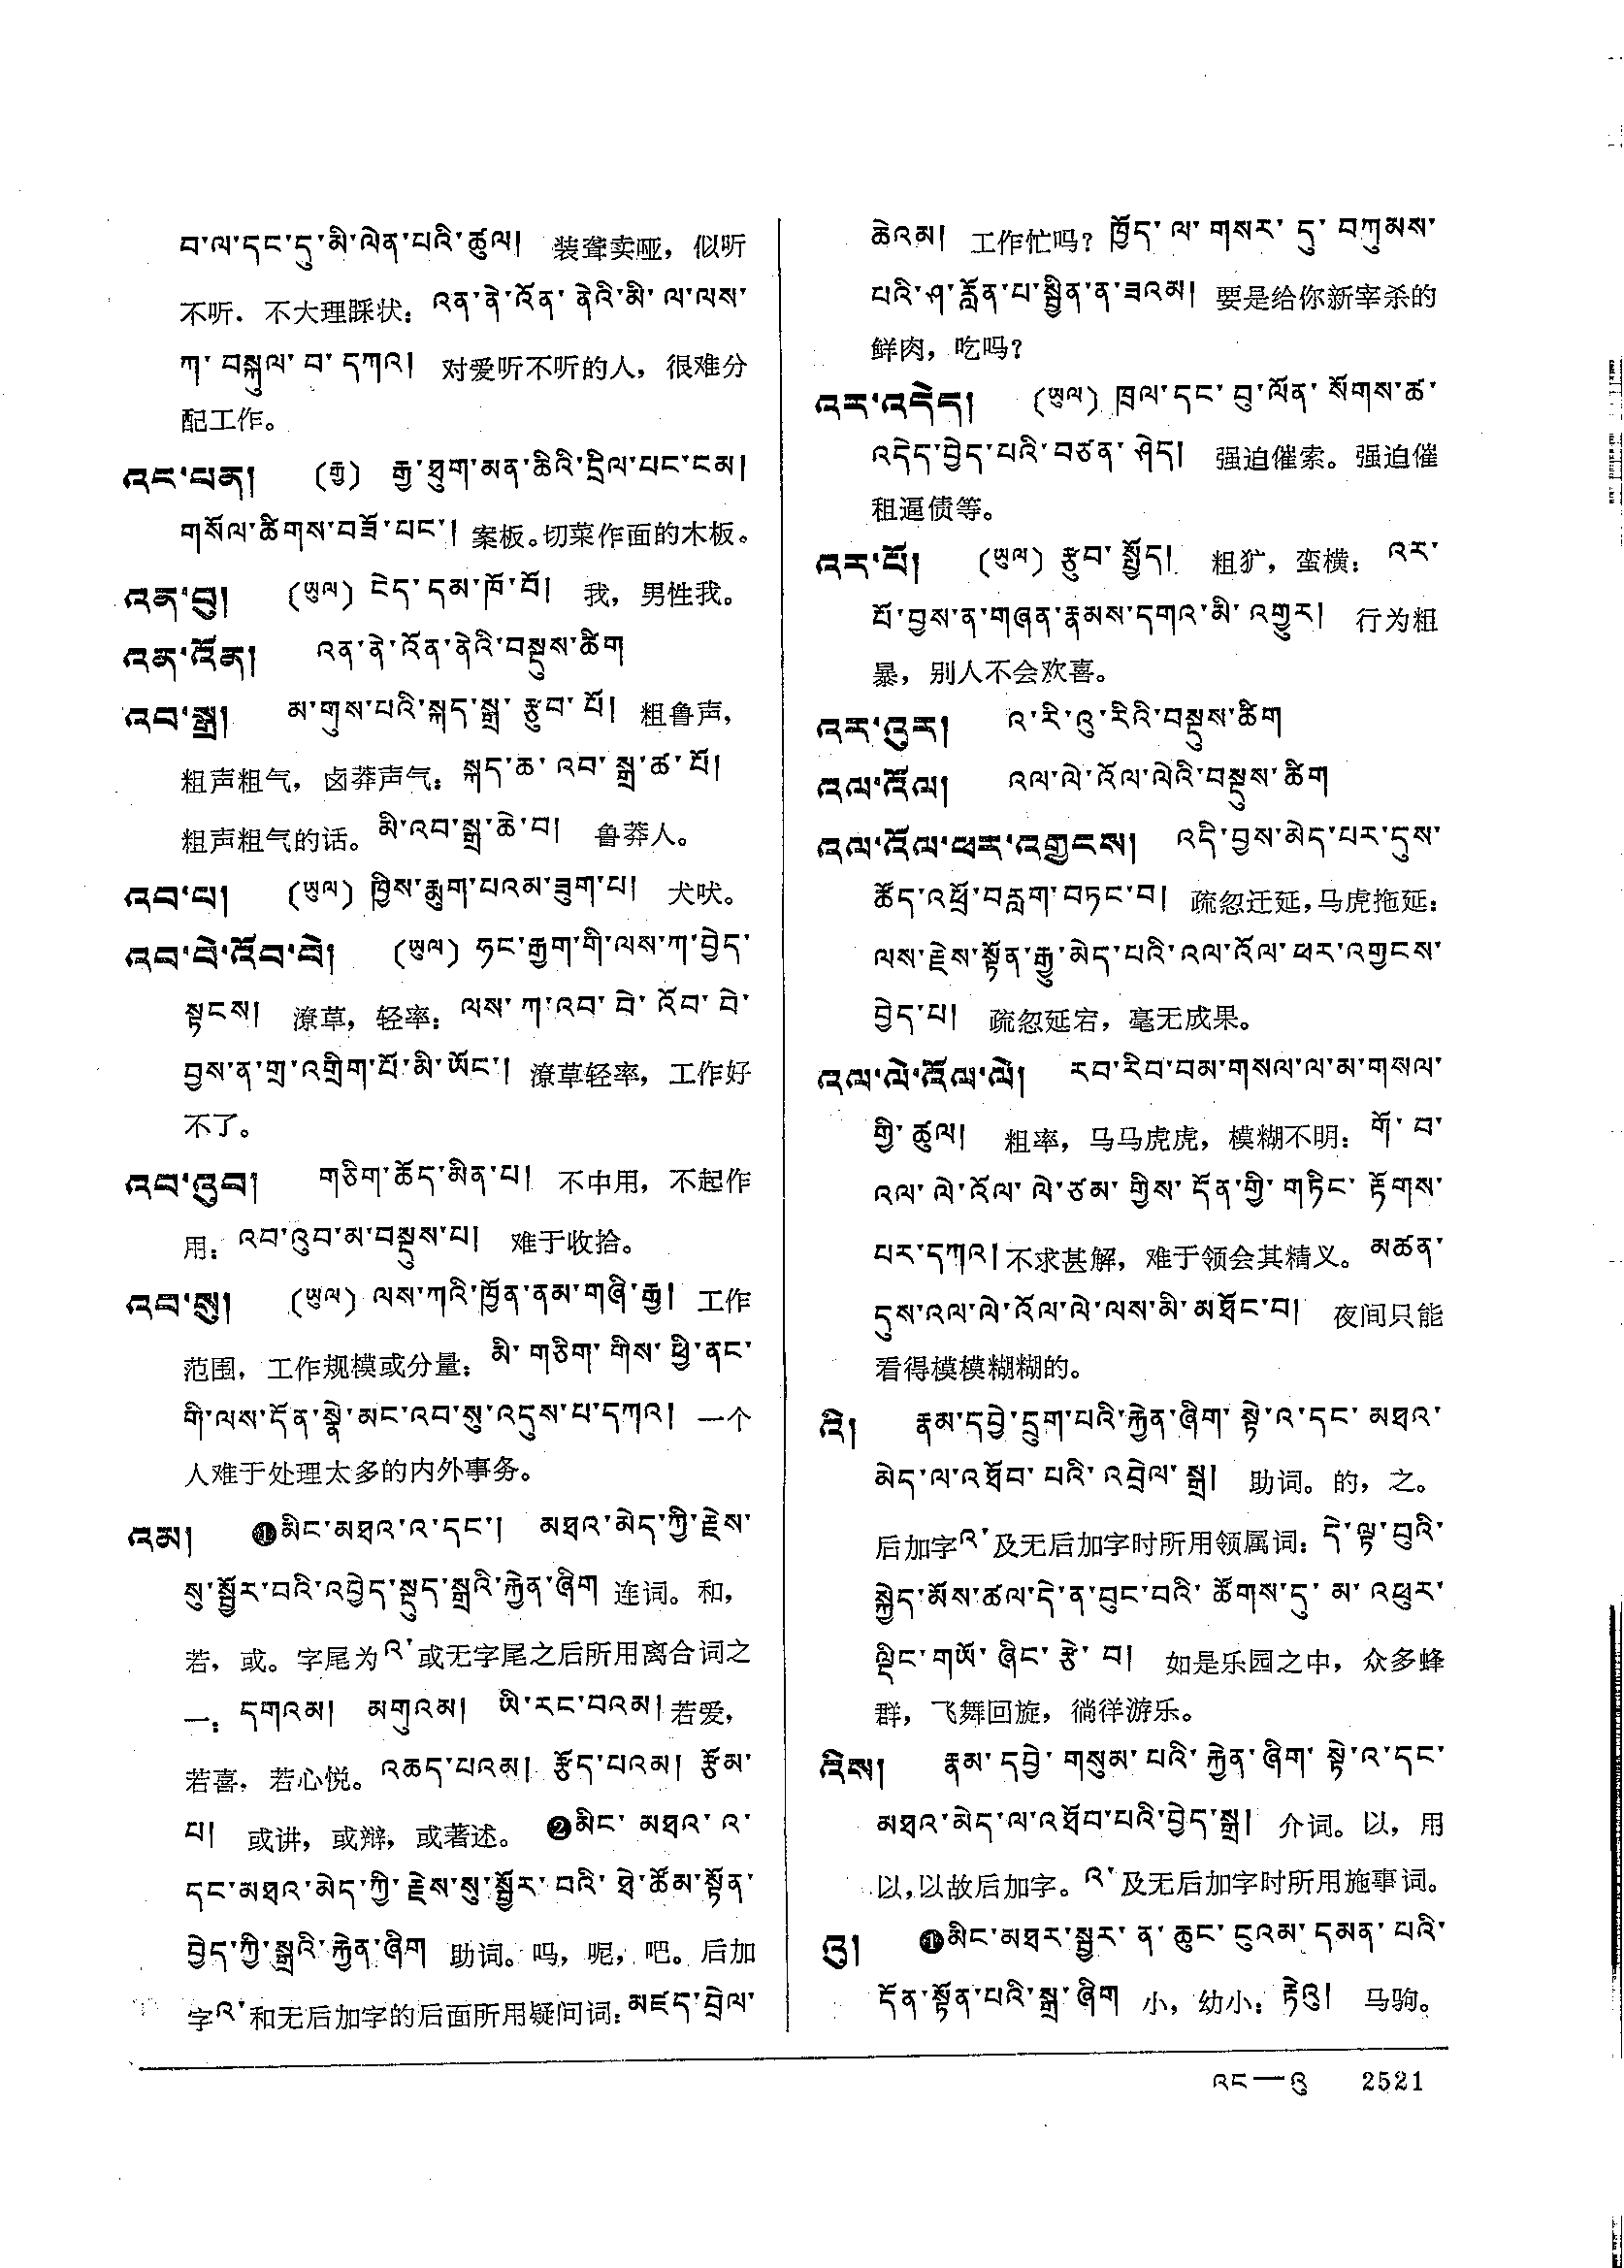 བ་ལ་དང་དུ་མི་ལེན་པའི་ཚུལ། 装聋卖哑，似听
不听．不大理睬状：འན་ནེ་འོན་ནེའི་མི་ལ་ལས་
ཀ་བསྐུལ་བ་དཀའ། 对爱听不听的人，很难分
配工作。
འང་པན། (རྒྱ) རྒྱ་ཐུག་མན་ཆིའི་དྲིལ་པང་ངམ།
གསོལ་ཚིགས་བཟོ་པང་། 案板。切菜作面的木板。
འན་བུ། (ཡུལ) ངེད་དམ་ཁོ་བོ། 我，男性我。
འན་འོན། འན་ནེ་འོན་ནེའི་བསྡུས་ཚིག
འབ་སྒྲ། མ་གུས་པའི་སྐད་སྒྲ་རྩུབ་པོ། 粗鲁声，
粗声粗气，卤莽声气：སྐད་ཆ་འབ་སྒྲ་ཚ་པོ།
粗声粗气的话。མི་འབ་སྒྲ་ཆེ་བ། 鲁莽人。
འབ་པ། (ཡུལ) ཁྱིས་རྨུག་པའམ་ཟུག་པ། 犬吠。
འབ་བེ་འོབ་བེ། (ཡུལ) ཧང་རྒྱག་གི་ལས་ཀ་བྱེད་
སྟངས། 潦草，轻率：ལས་ཀ་འབ་བེ་འོབ་བེ་
བྱས་ན་གྲ་འགྲིག་པོ་མི་ཡོང་། 潦草轻率，工作好
不了。
འབ་འུབ། གཅིག་ཆོད་མིན་པ། 不中用，不起作
用：འབ་འུབ་མ་བསྡུས་པ། 难于收拾。
འབ་སུ། (ཡུལ) ལས་ཀའི་ཁྱོན་ནམ་གཞི་རྒྱ། 工作
范围，工作规模或分量：མི་གཅིག་གིས་ཕྱི་ནང་
གི་ལས་དོན་སྣེ་མང་འབ་སུ་འདུས་པ་དཀའ། 一个
人难于处理太多的内外事务。
འམ། ❶མིང་མཐའ་འ་དང་། མཐའ་མེད་ཀྱི་རྗེས་
སུ་སྦྱོར་བའི་འབྱེད་སྡུད་སྒྲའི་རྐྱེན་ཞིག 连词。和，
若，或。字尾为འ་或无字尾之后所用离合词之
一：དགའམ། མགུའམ། ཡི་རང་བའམ། 若爱，
若喜，若心悦。འཆད་པའམ། རྩོད་པའམ། རྩོམ་
པ། 或讲，或辩，或著述。 ❷མིང་མཐའ་འ་
དང་མཐའ་མེད་ཀྱི་རྗེས་སུ་སྦྱོར་བའི་ཐེ་ཚོམ་སྟོན་
བྱེད་ཀྱི་སྒྲའི་རྐྱེན་ཞིག 助词。吗，呢，吧。后加
字འ་和无后加字的后面所用疑问词：མཛད་བྲེལ་
ཆེའམ། 工作忙吗？ཁྱོད་ལ་གསར་དུ་བཀུམས་
པའི་ཤ་རློན་པ་སྦྱིན་ན་ཟའམ། 要是给你新宰杀的
鲜肉，吃吗？
འར་འདེད། (ཡུལ) ཁྲལ་དང་བུ་ལོན་སོགས་ཚ་
འདེད་བྱེད་པའི་བཙན་ཤེད། 强迫催索。强迫催
租逼债等。
འར་པོ། (ཡུལ) རྩུབ་སྤྱོད། 粗犷，蛮横：འར་
པོ་བྱས་ན་གཞན་རྣམས་དགའ་མི་འགྱུར། 行为粗
暴，别人不会欢喜。
འར་འུར། འ་རི་འུ་རིའི་བསྡུས་ཚིག
འལ་འོལ། འལ་ལེ་འོལ་ལེའི་བསྡུས་ཚིག
འལ་འོལ་ཕར་འགྱངས། འདི་བྱས་མེད་པར་དུས་
ཚོད་འཕྲོ་བརླག་བཏང་བ། 疏忽迁延，马虎拖延：
ལས་རྗེས་སྟོན་རྒྱུ་མེད་པའི་འལ་འོལ་ཕར་འགྱངས་
བྱེད་པ། 疏忽延宕，毫无成果。
འལ་ལེ་འོལ་ལེ། རབ་རིབ་བམ་གསལ་ལ་མ་གསལ་
གྱི་ཚུལ། 粗率，马马虎虎，模糊不明：གོ་བ་
འལ་ལེ་འོལ་ལེ་ཙམ་གྱིས་དོན་གྱི་གཏིང་རྟོགས་
པར་དཀའ། 不求甚解，难于领会其精义。མཚན་
དུས་འལ་ལེ་འོལ་ལེ་ལས་མི་མཐོང་བ། 夜间只能
看得模模糊糊的。
འི། རྣམ་དབྱེ་དྲུག་པའི་རྐྱེན་ཞིག་སྟེ་འ་དང་མཐའ་
མེད་ལ་འཐོབ་པའི་འབྲེལ་སྒྲ། 助词。的，之。
后加字འ་及无后加字时所用领属词：དེ་ལྟ་བུའི་
སྐྱེད་མོས་ཚལ་དེ་ན་བུང་བའི་ཚོགས་དུ་མ་འཕུར་
ལྡིང་གཡོ་ཞིང་རྩེ་བ། 如是乐园之中，众多蜂
群，飞舞回旋，徜徉游乐。
འིས། རྣམ་དབྱེ་གསུམ་པའི་རྐྱེན་ཞིག་སྟེ་འ་དང་
མཐའ་མེད་ལ་འཐོབ་པའི་བྱེད་སྒྲ། 介词。以，用
以，以故后加字。འ་及无后加字时所用施事词。
འུ། ❶མིང་མཐར་སྦྱར་ན་ཆུང་ངུའམ་དམན་པའི་
དོན་སྟོན་པའི་སྒྲ་ཞིག 小，幼小：རྟེའུ། 马驹。
འང—འུ 2521